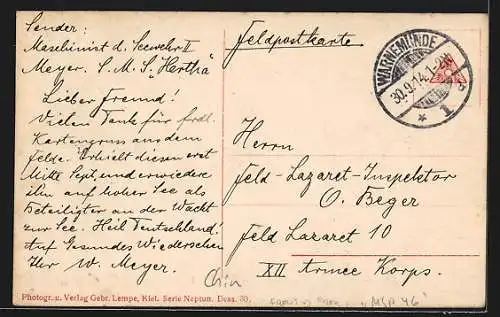 Sender:
Maschinist d. Seewehr II
Meyer. S.M.S. "Hertha"
Lieber Freund!
Vielen Dank für frdl.
Kartengruss aus dem
Felde. Erhielt diesen erst
Mitte Sept. und erwiedere
ihn auf hoher See als
Beteiligter an der Wacht
zur See. Heil Deutschland!
Auf Gesundes Wiedersehen
Ihr W. Meyer.
Photogr. u. Verlag Gebr. Lempe, Kiel. Serie Neptun. Dess. 30.
Feldpostkarte
WARNEMÜNDE
30.9.14.1-2N
* 1
Herrn
Feld-Lazaret-Inspektor
O. Beger
Feld Lazaret 10
XII Armee Korps.
"MSP 46"